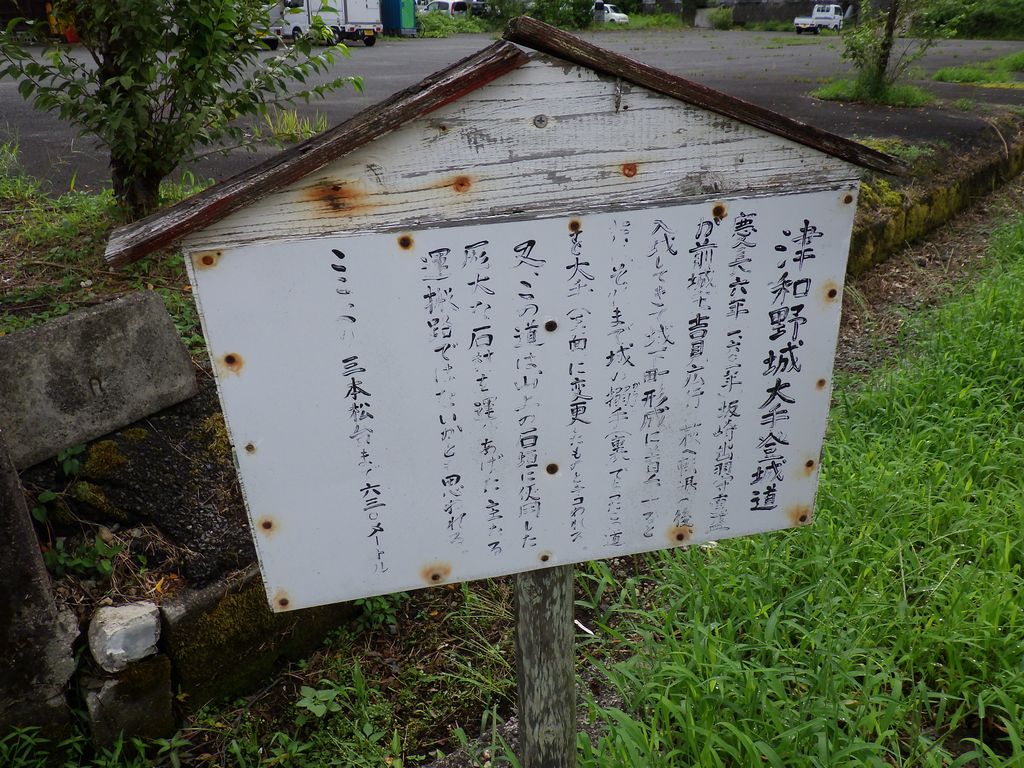 津和野城大手登城道
慶長六年(一六〇一年)坂崎出羽守直盛
が前城主吉見広行 萩へ 後
入城してきて城下町形成に着 すると
それまで城の搦手(裏)で った道
を大手(正面)に変更したものと云われる
又、この道は山上の石垣に使用した
尨大な石材を運びあげた主たる
運搬路ではないかとも思われる。
ここから 三本松台まで六三〇メートル